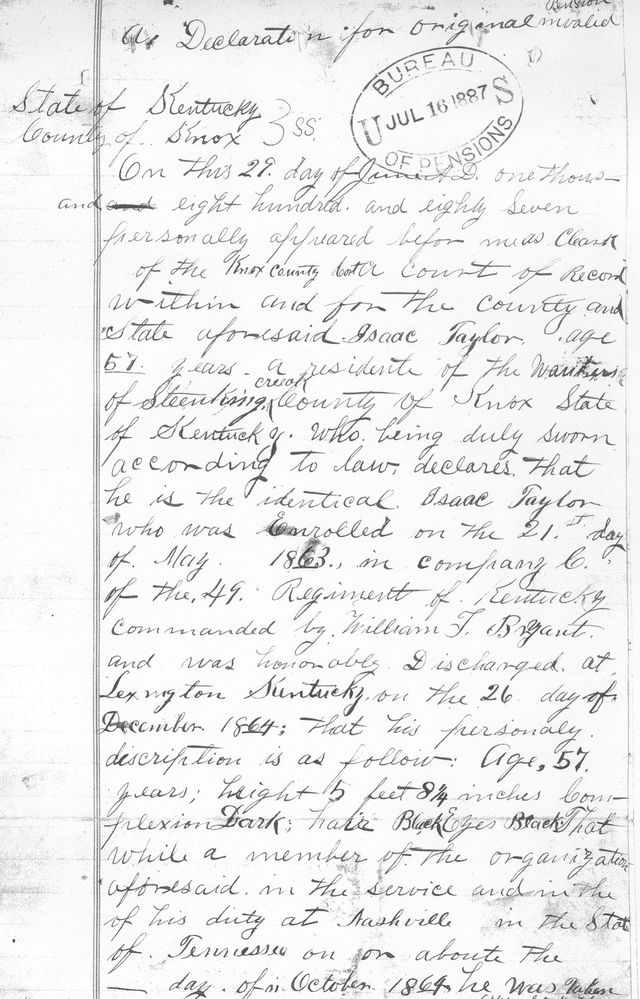 Pension
A, Declaration for original invalid
BUREAU
U JUL 16 1887 S
OF PENSIONS
State of Kentucky
County of Knox } SS.
On this 29. day of June A.D. one thous-
and and eight hundred. and eighty seven
personally appeared befor me as Cleark
of the Knox county Court of Record
within and for the county and
State aforesaid Isaac Taylor. age
57. years. a residente of the
of Steenking creeak County of Knox State
of Kentucky. Who being duly sworn
according to law, declares that
he is the identical Isaac Taylor
who was Enrolled on the 21.st day
of May. 1863., in company C.
of the, 49. Regiment of. Kentucky
commanded by William T. Bryant.
and was honorably. Discharged at
Lexington Kentucky, on the 26 day of
December. 1864; that his personaly.
discription is as follow: Age, 57.
years; height 5 feet 8¼ inches Com-
plexion Dark; hair Black Eyes Black That
while a member of the organization
aforesaid. in the service and in the
of his duty at Nashville in the State
of. Tennessee on or aboute the
— day. of October 1864 he was Taken